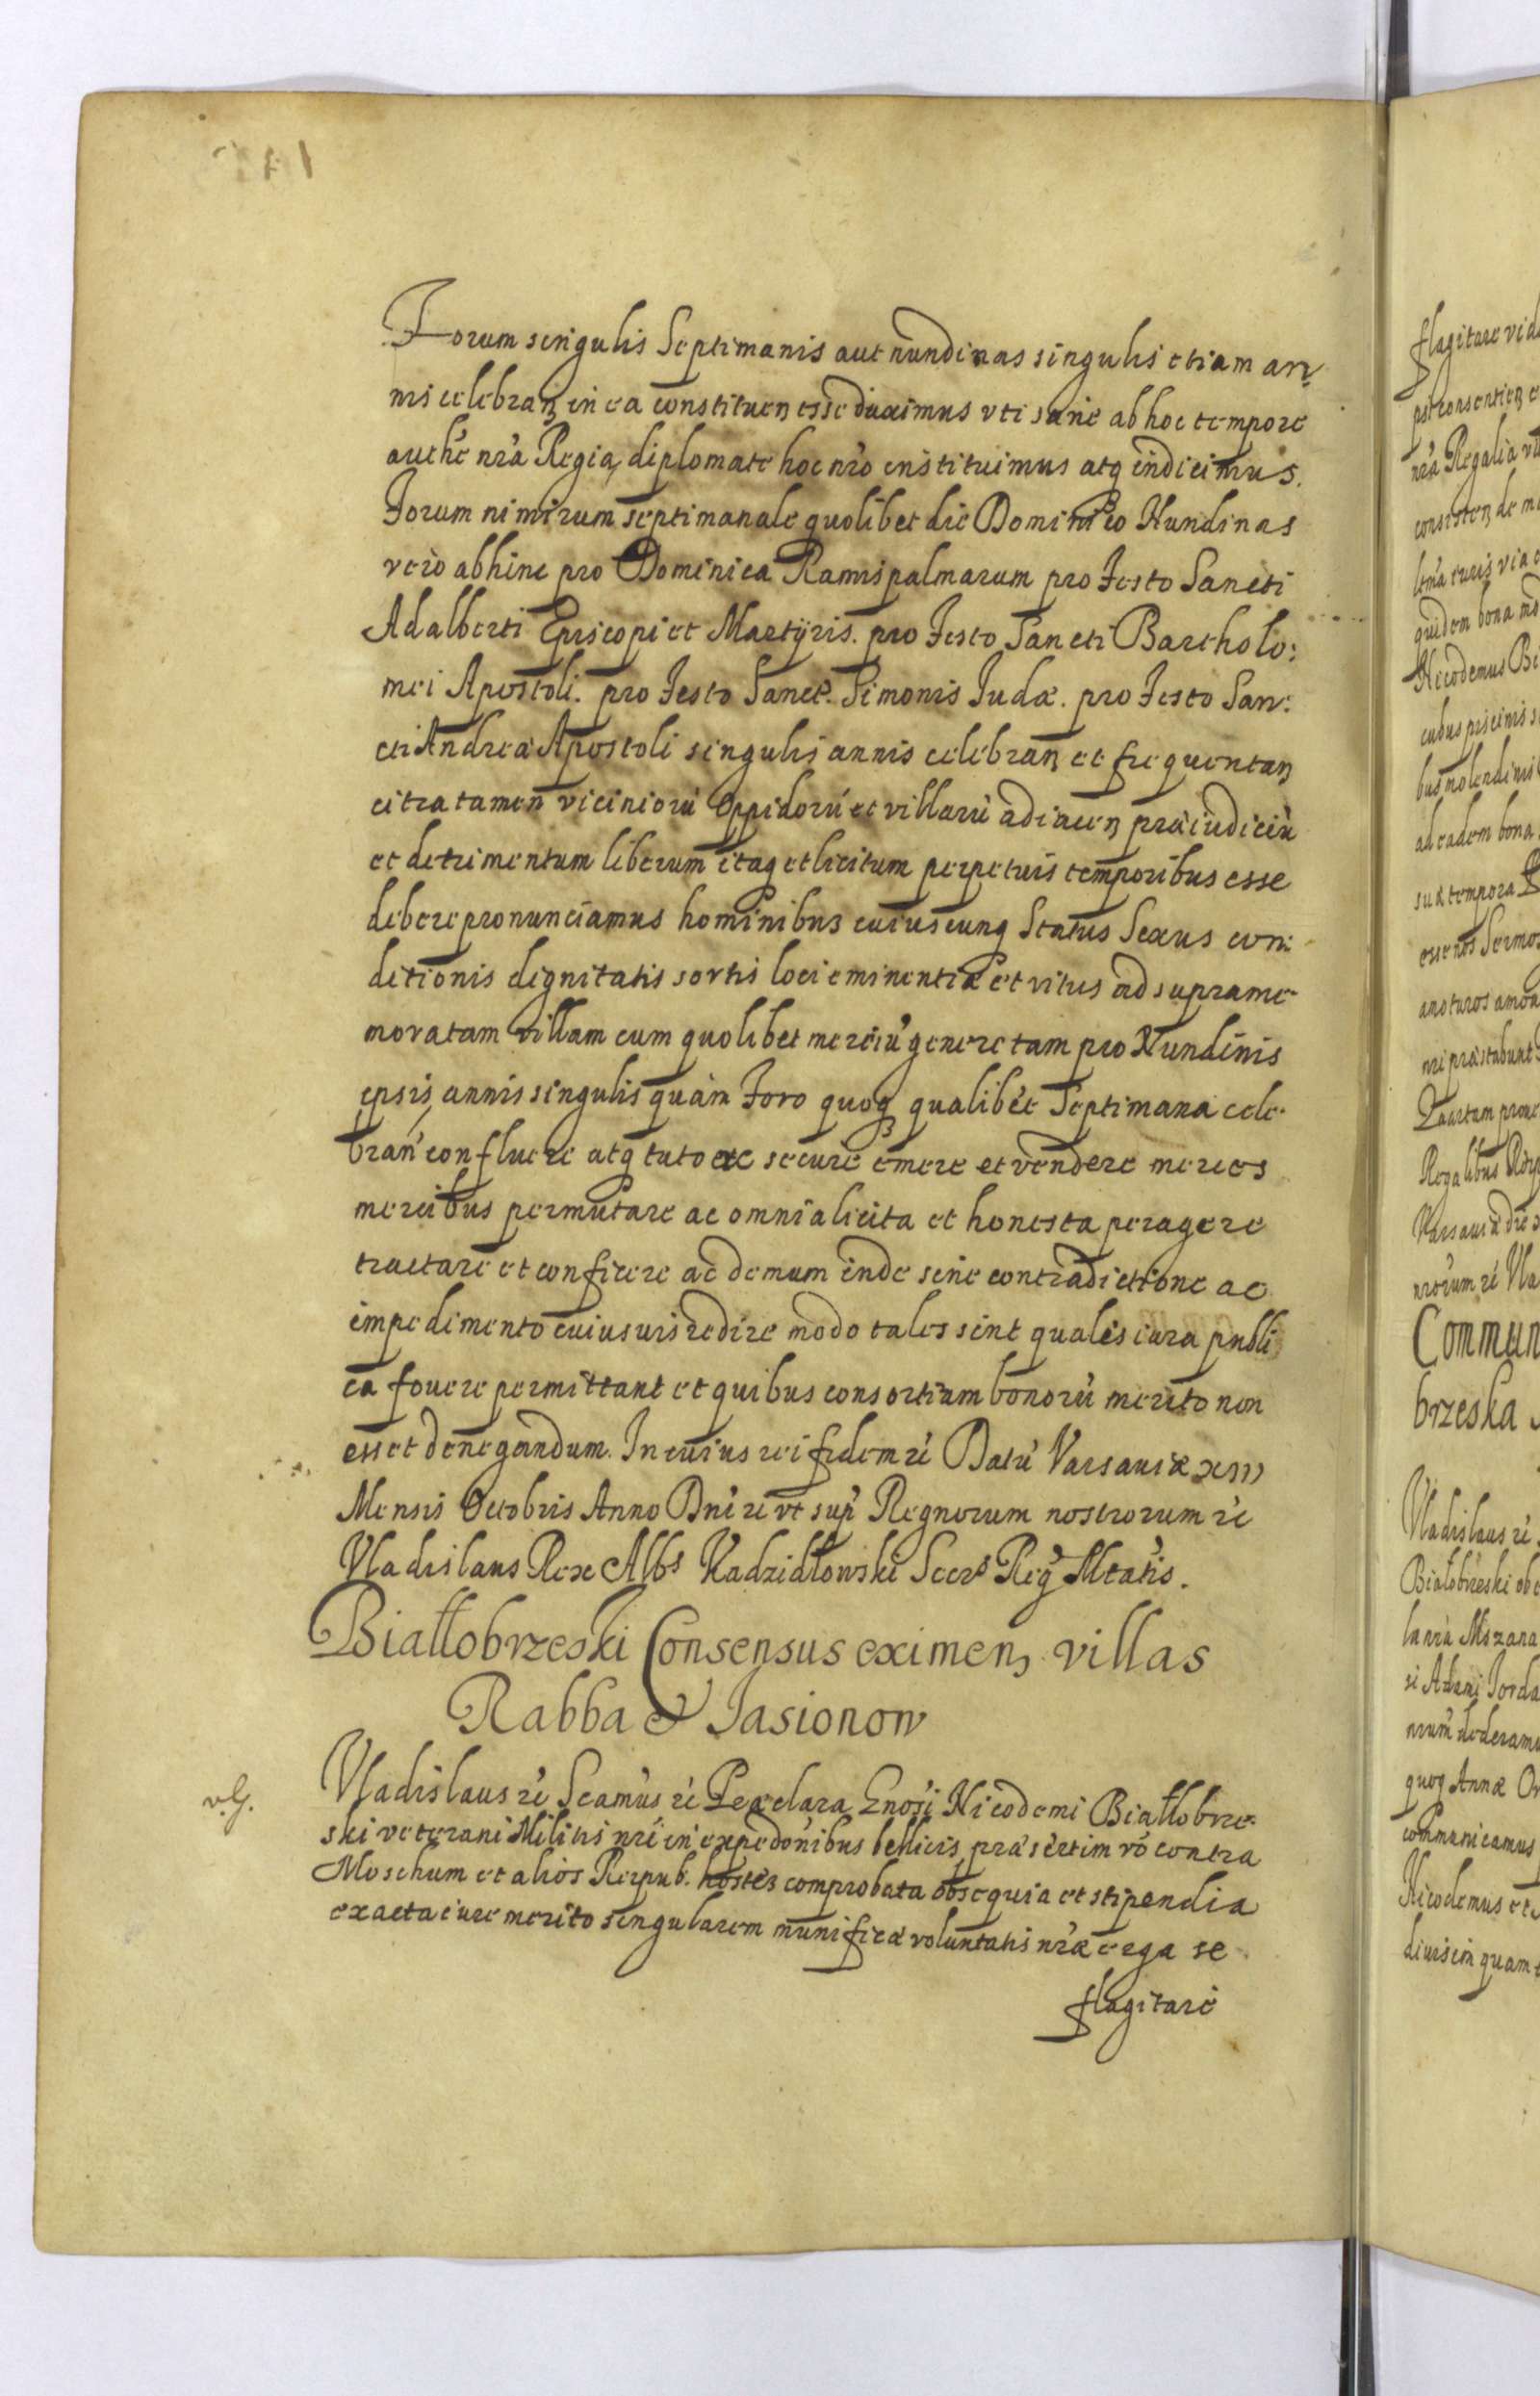 Forum singulis Septimanis aut nundinas singulis etiam an¬
nis celebran in ea constituen esse duximus vti sane ab hoc tempore
authē nrā Regia, diplomate hoc nrō instituimus atq indicimus.
Forum nimirum septimanale quolibet die Dominico Nundinas
verò abhinc pro Dominica Ramispalmarum pro Festo Sancti
Adalberti Episcopi et Martÿris. pro Festo Sancti Bartholo:
mei Apostoli. pro Festo Sanct. Simonis Iudæ. pro Festo San:
cti Andreæ Apostoli singulis annis celebran et frequentan
citra tamen viciniorū Oppidorū et villarū adiacen præiudiciū
et detrimentum liberum itaq et licitum perpetuis temporibus esse
debere pronunciamus hominibus cuiuscunq Status Sexus con:
ditionis dignitatis sortis loci eminentiæ et ritus ad suprame¬
moratam villam cum quolibet merciū genere tam pro Nundinis
ipsis, annis singulis quàm Foro quoq qualibet Septimana cele¬
bran confluere atq tuto ac secure emere et vendere merces
mercibus permutare ac omnia licita et honesta peragere
tractare et conficere ac demum inde sine contradictione ac
impedimento cuiusuis redire modo tales sint quales iura publi
ca fouere permittant et quibus consortium bonorū merito non
esset denegandum. In cuius rei fidem rē Datū Varsauiæ XIII
Mensis Octobris Anno Dni rē vt sup Regnorum nostrorum rē
Vladislaus Rex Albs Kadzidłowski Secrs Reg Mtatis.
Białłobrzeski Consensus eximen villas
Rabba & Jasionow
v.G.
Vladislaus rē Seamūs rē Præclara Gnosi Nicodemi Białłobrze¬
ski veterani Militis nrī in expedonibus bellicis, præsertim vō contra
Moschum et alios Reipub. hostes comprobata obsequia et stipendia
exacta iure merito singularem munificæ voluntatis nræ erga se
flagitare
flagitare vid
consisten de m
quidem bona
Nicodemus Bi
cubus piscinis s
bus molendinis
ad eadem bona
sua tempora
esse nos Sermos
nri præstabunt
Regalibus
Varsauiæ die
nrorum rē Vla
Commun
brzeska
Vladislaus rē
Białobrzeski ob
quoq Annæ
communicamus
Nicodemus et
quam